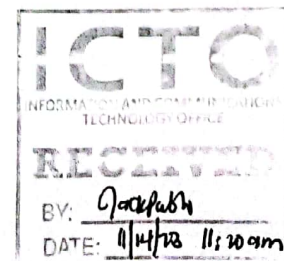 ICTO
INFORMATION AND COMMUNICATIONS
TECHNOLOGY OFFICE
RECEIVED
BY:
DATE: 11/14/23 11:20am